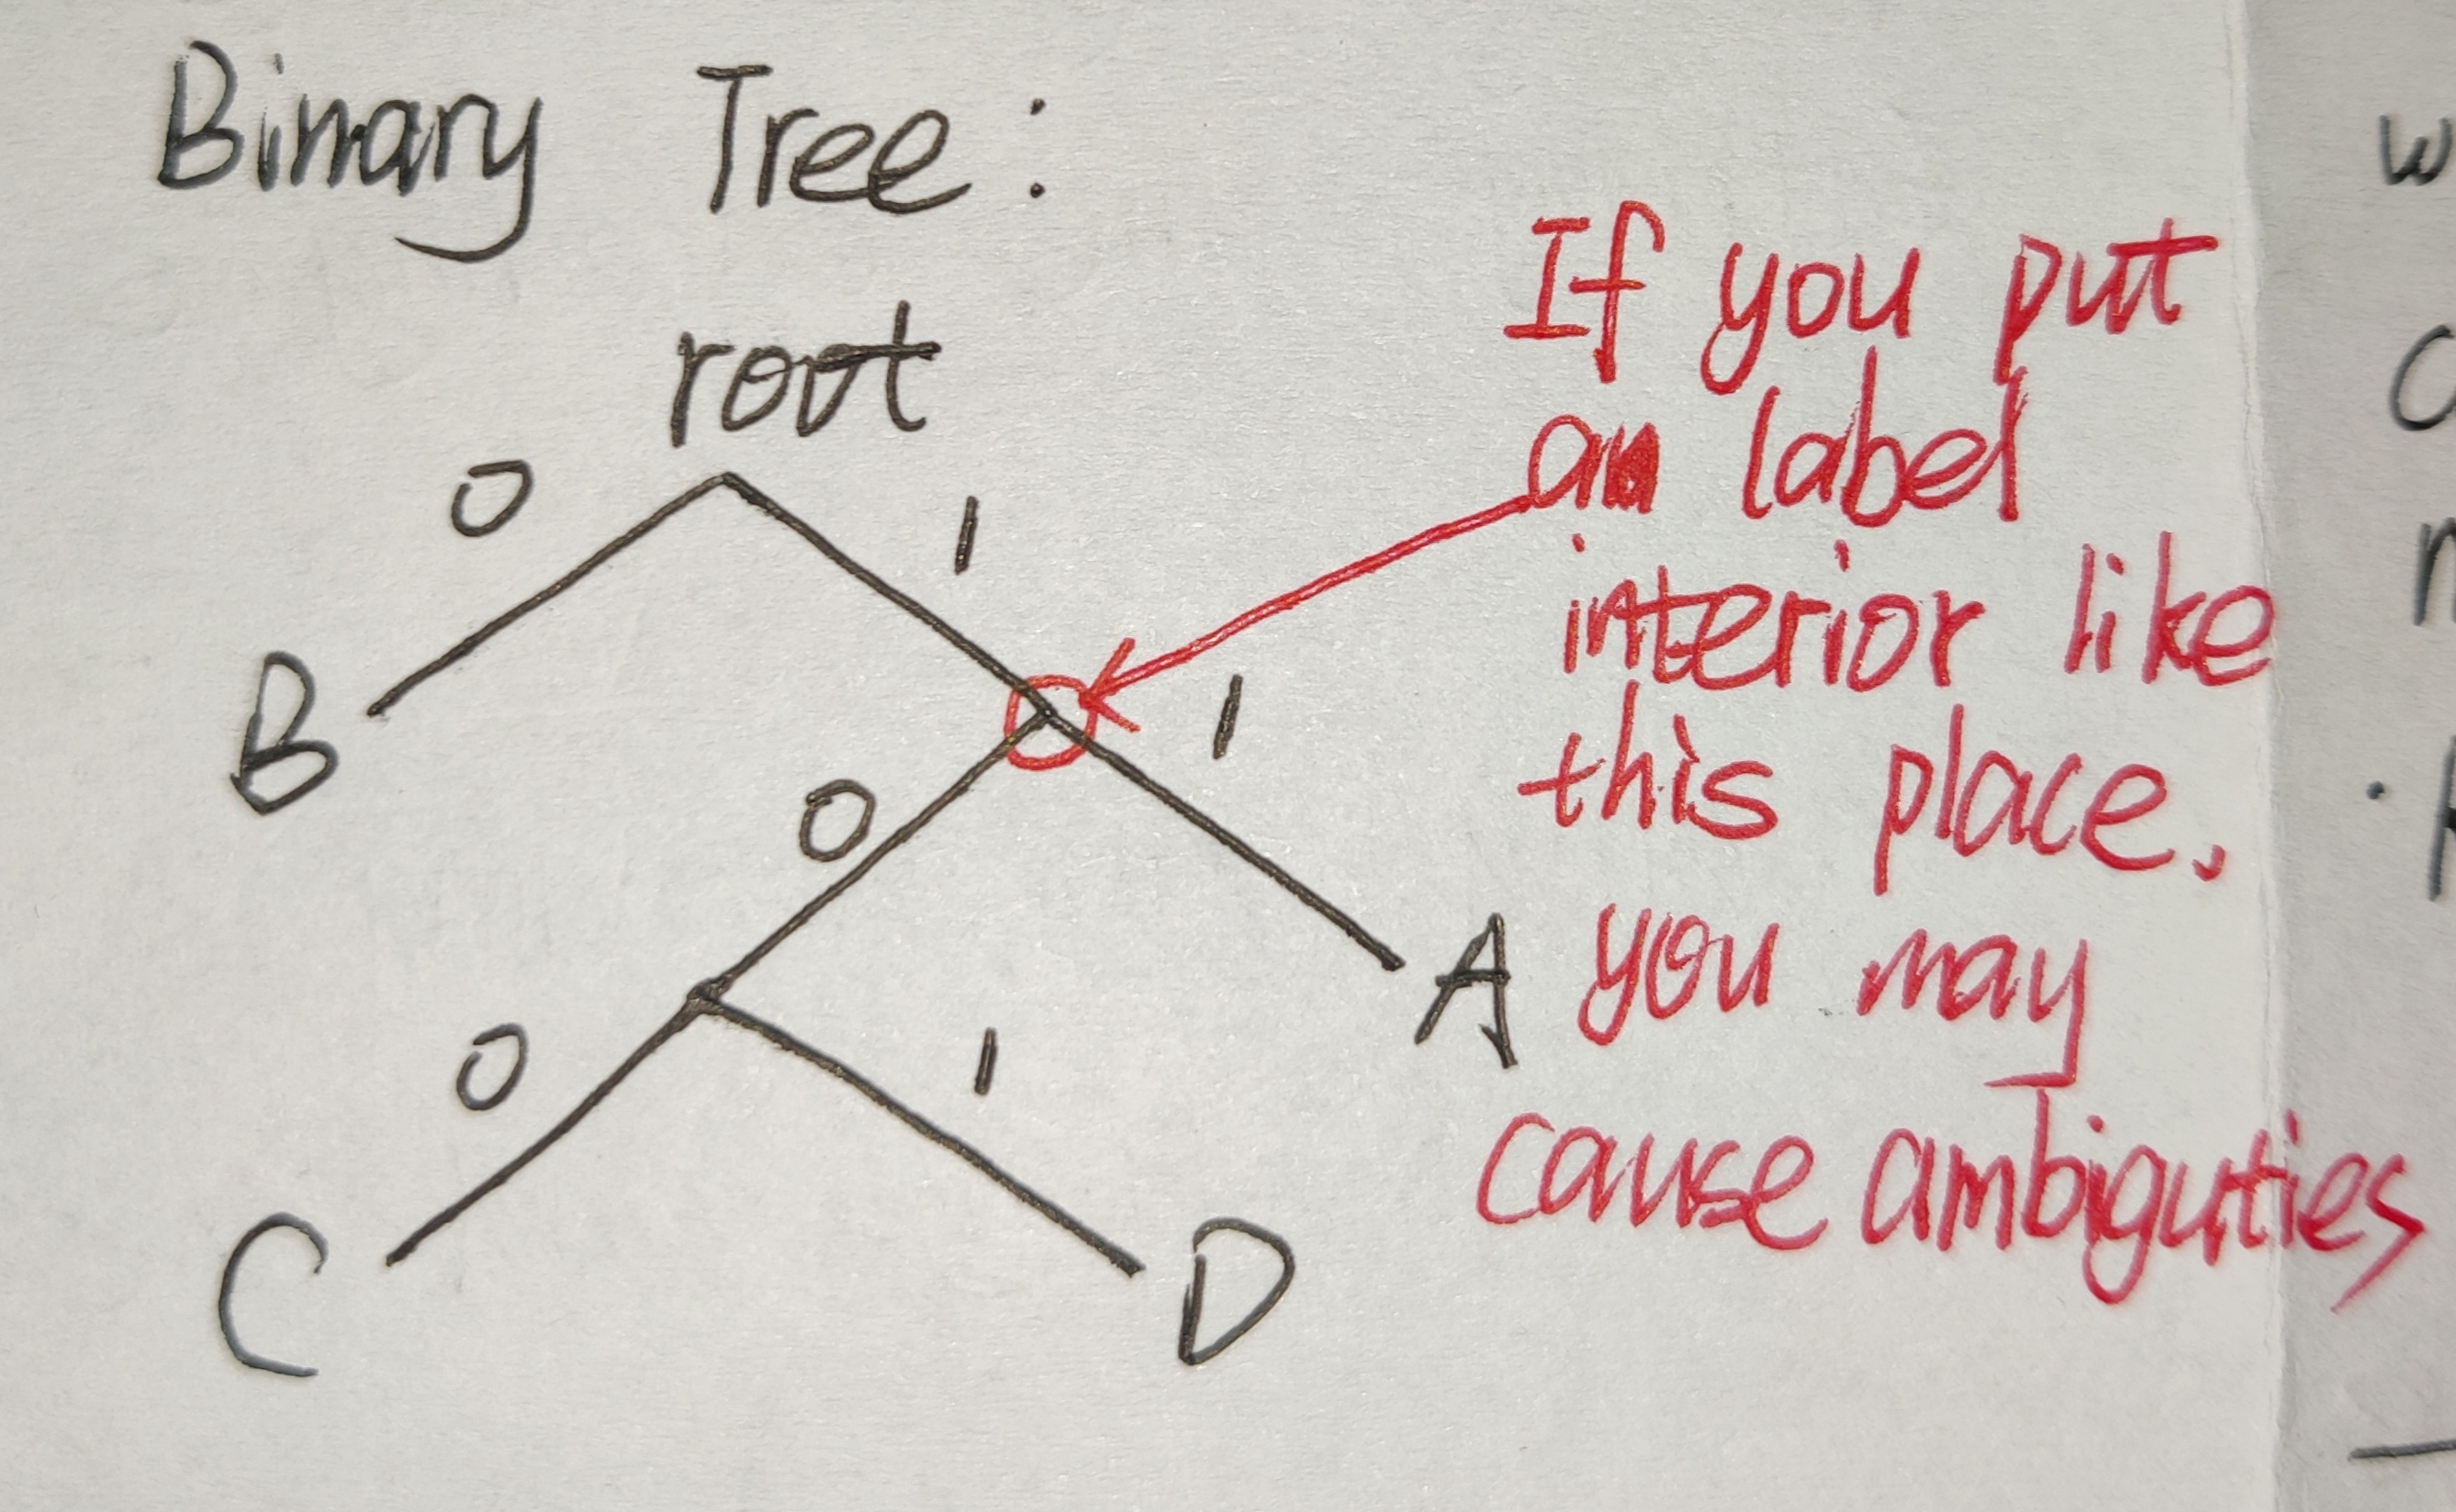 Binary Tree:
root
0
1
B
0
1
A
0
1
C
D
If you put
an label
interior like
this place,
you may
cause ambiguties